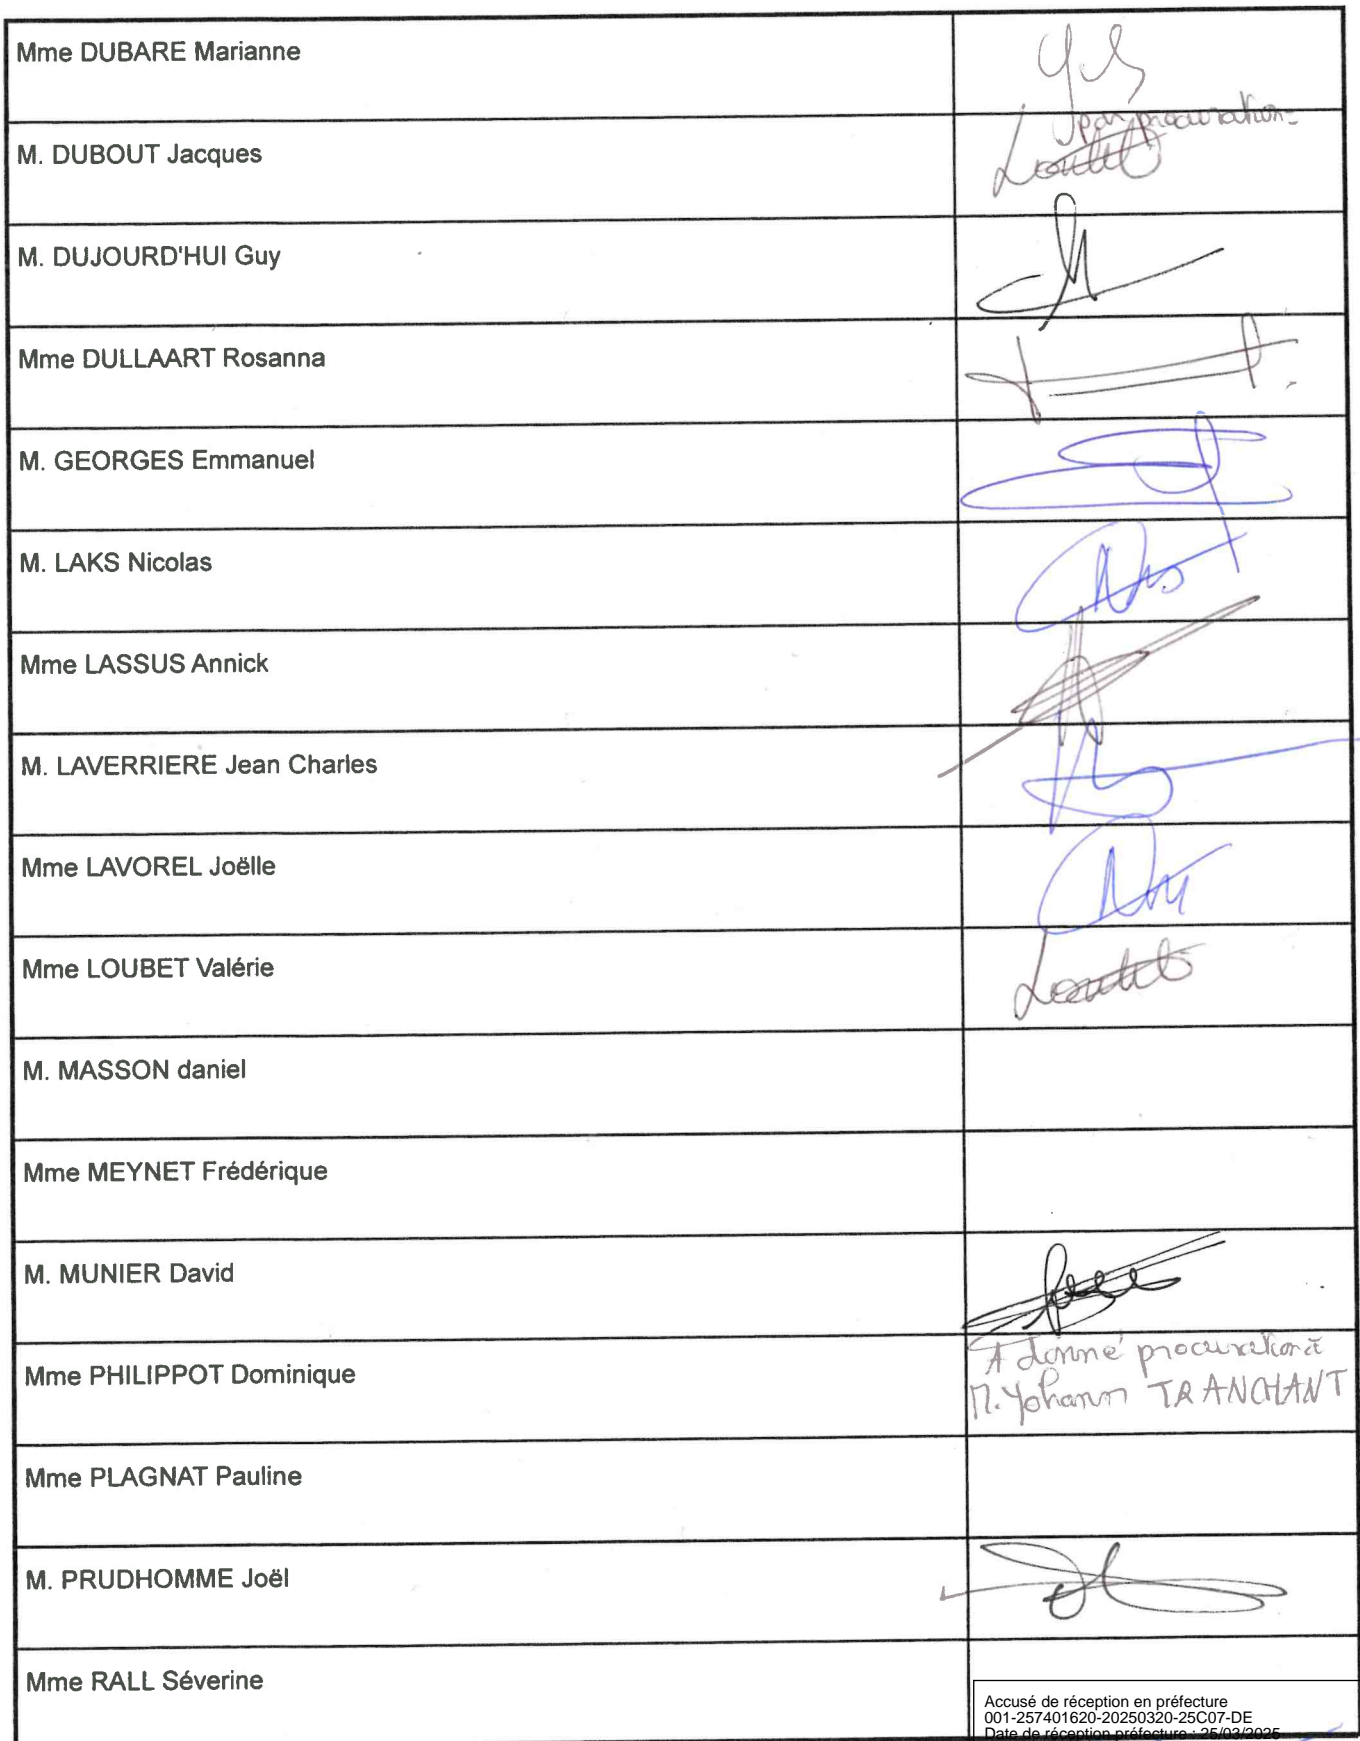 Mme DUBARE Marianne
M. DUBOUT Jacques
par procuration
M. DUJOURD'HUI Guy
Mme DULLAART Rosanna
M. GEORGES Emmanuel
M. LAKS Nicolas
Mme LASSUS Annick
M. LAVERRIERE Jean Charles
Mme LAVOREL Joëlle
Mme LOUBET Valérie
M. MASSON daniel
Mme MEYNET Frédérique
M. MUNIER David
Mme PHILIPPOT Dominique
A donné procuration à
M. Yohann TRANCHANT
Mme PLAGNAT Pauline
M. PRUDHOMME Joël
Mme RALL Séverine
Accusé de réception en préfecture
001-257401620-20250320-25C07-DE
Date de réception préfecture : 25/03/2025